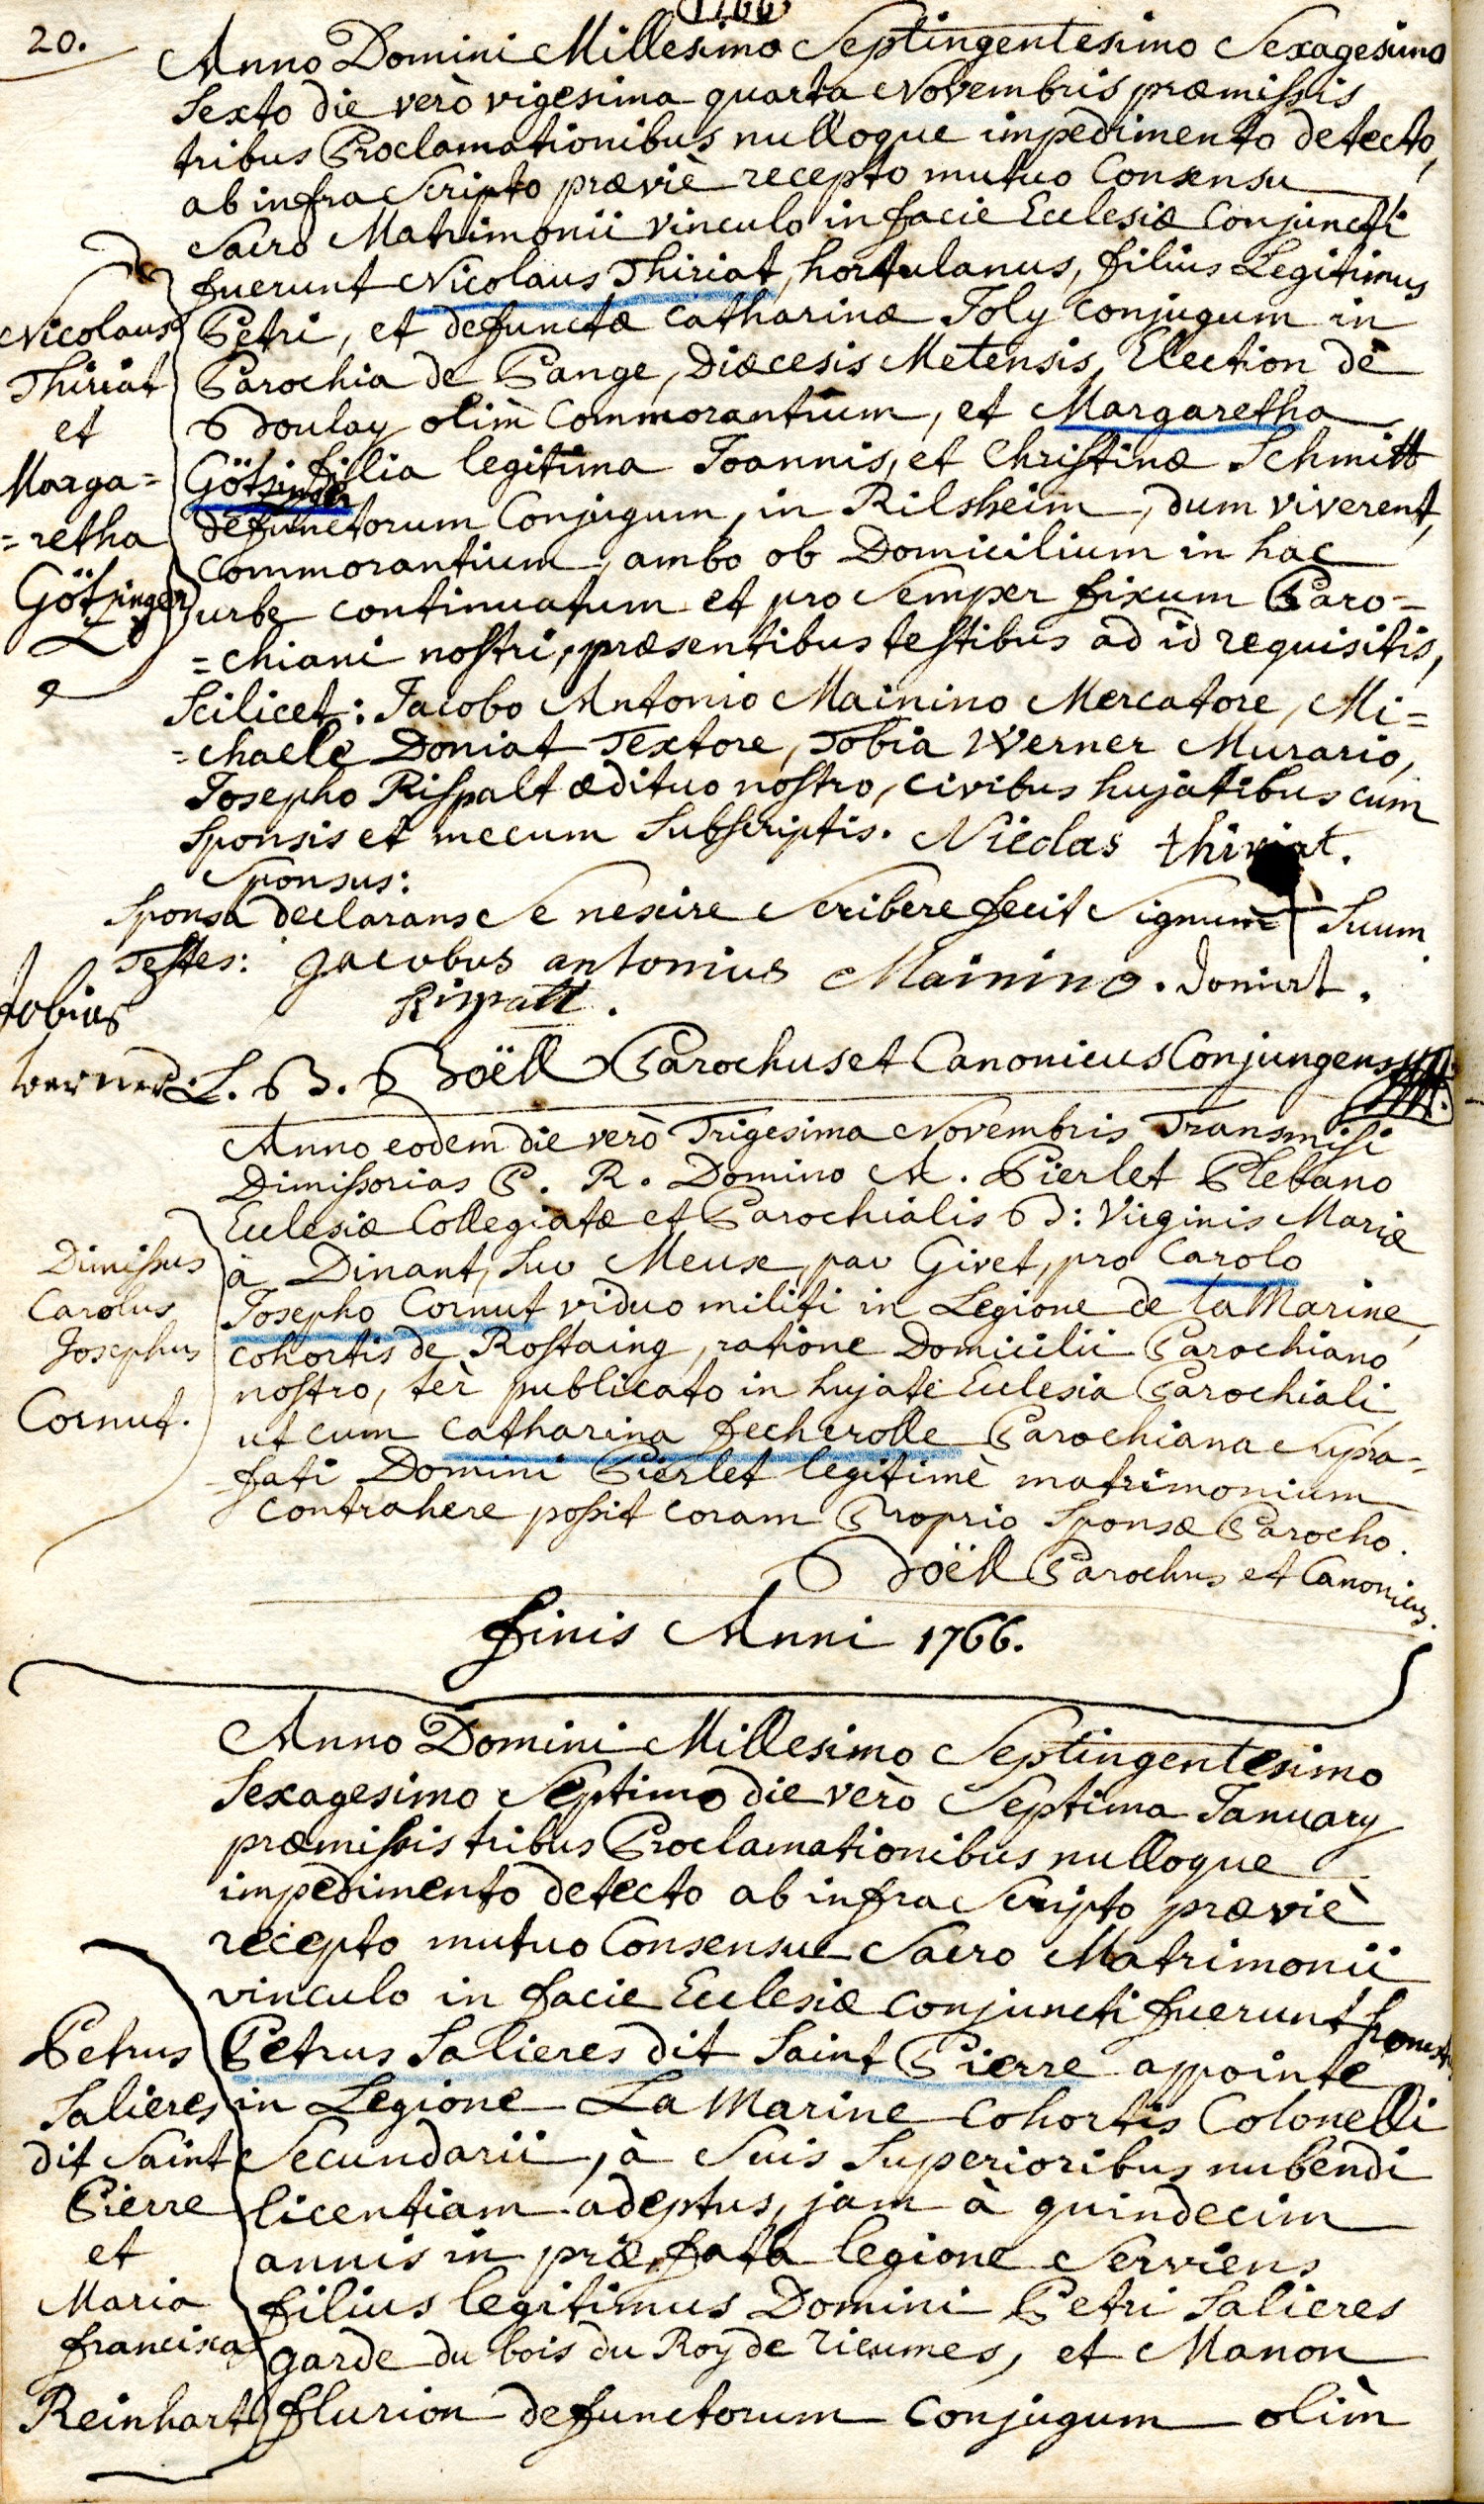 1766
20.
Anno Domini Millesimo Septingentesimo Sexagesimo
Sexto die verò vigesima quarta Novembris præmissis
tribus Proclamationibus nulloque impedimento detecto,
ab infra Scripto præviè recepto mutuo Consensu
Sacro Matrimonii vinculo in facie Ecclesiæ Conjuncti
fuerunt Nicolaus Thiriat, hortulanus, filius Legitimus
Petri, et defunctæ Catharinæ Joly conjugum in
Parochia de Pange, Diæcesis Metensis, Election de
Boulay olim Commorantium, et Margaretha
Götzinger filia legitima Joannis, et Christinæ Schmitt
defunctorum Conjugum, in Rilsheim, dum viverent,
Commorantium, ambo ob Domicilium in hac
urbe continuatum et pro Semper fixum Paro=
=chiani nostri, præsentibus testibus ad id requisitis,
Scilicet: Jacobo Antonio Mainino Mercatore, Mi=
=chaele Doniat Textore, Tobia Werner Murario,
Josepho Rispalt ædituo nostro, civibus hujatibus cum
Sponsis et mecum Subscriptis. Nicolas thiriat.
Sponsus:
Sponsa declarans Se nescire Scribere fecit Signum + Suum
Testes: Jacobus antonius Mainino. doniat.
Rispalt.
tobias
werner
L. B. Boëll Parochus et Canonicus Conjungens
Nicolaus
Thiriat
et
Marga=
=retha
Götzinger
Anno eodem die verò Trigesima Novembris Transmisi
Dimissorias P. R. Domino A. Pierlet Plebano
Ecclesiæ Collegiatæ et Parochialis B: Virginis Mariæ
à Dinant, Sur Meuse, par Givet, pro Carolo
Josepho Cornut viduo militi in Legione de la Marine,
cohortis de Rostaing, ratione Domicilii Parochiano
nostro, ter publicato in hujate Ecclesia Parochiali,
ut cum Catharina fecherolle Parochiana Supra=
=fati Domini Pierlet legitimè matrimonium
contrahere possit coram Proprio Sponsæ Parocho.
Boëll Parochus et Canonicus.
Dimissus
Carolus
Josephus
Cornut.
finis Anni 1766.
Anno Domini Millesimo Septingentesimo
Sexagesimo Septimo die verò Septima January
præmissis tribus Proclamationibus nulloque
impedimento detecto ab infra Scripto præviè
recepto mutuo Consensu Sacro Matrimonii
vinculo in facie Ecclesiæ conjuncti fuerunt
Petrus Salieres dit Saint Pierre appointe
in Legione La Marine Cohortis Colonelli
Secundarii, à Suis Superioribus nubendi
licentiam adeptus, jam à quindecim
annis in præfata legione Serviens
filius legitimus Domini Petri Salieres
garde du bois du Roy de rieumes, et Manon
flurion defunctorum conjugum olim
Petrus
Salieres
dit Saint
Pierre
et
Maria
francisca
Reinhart